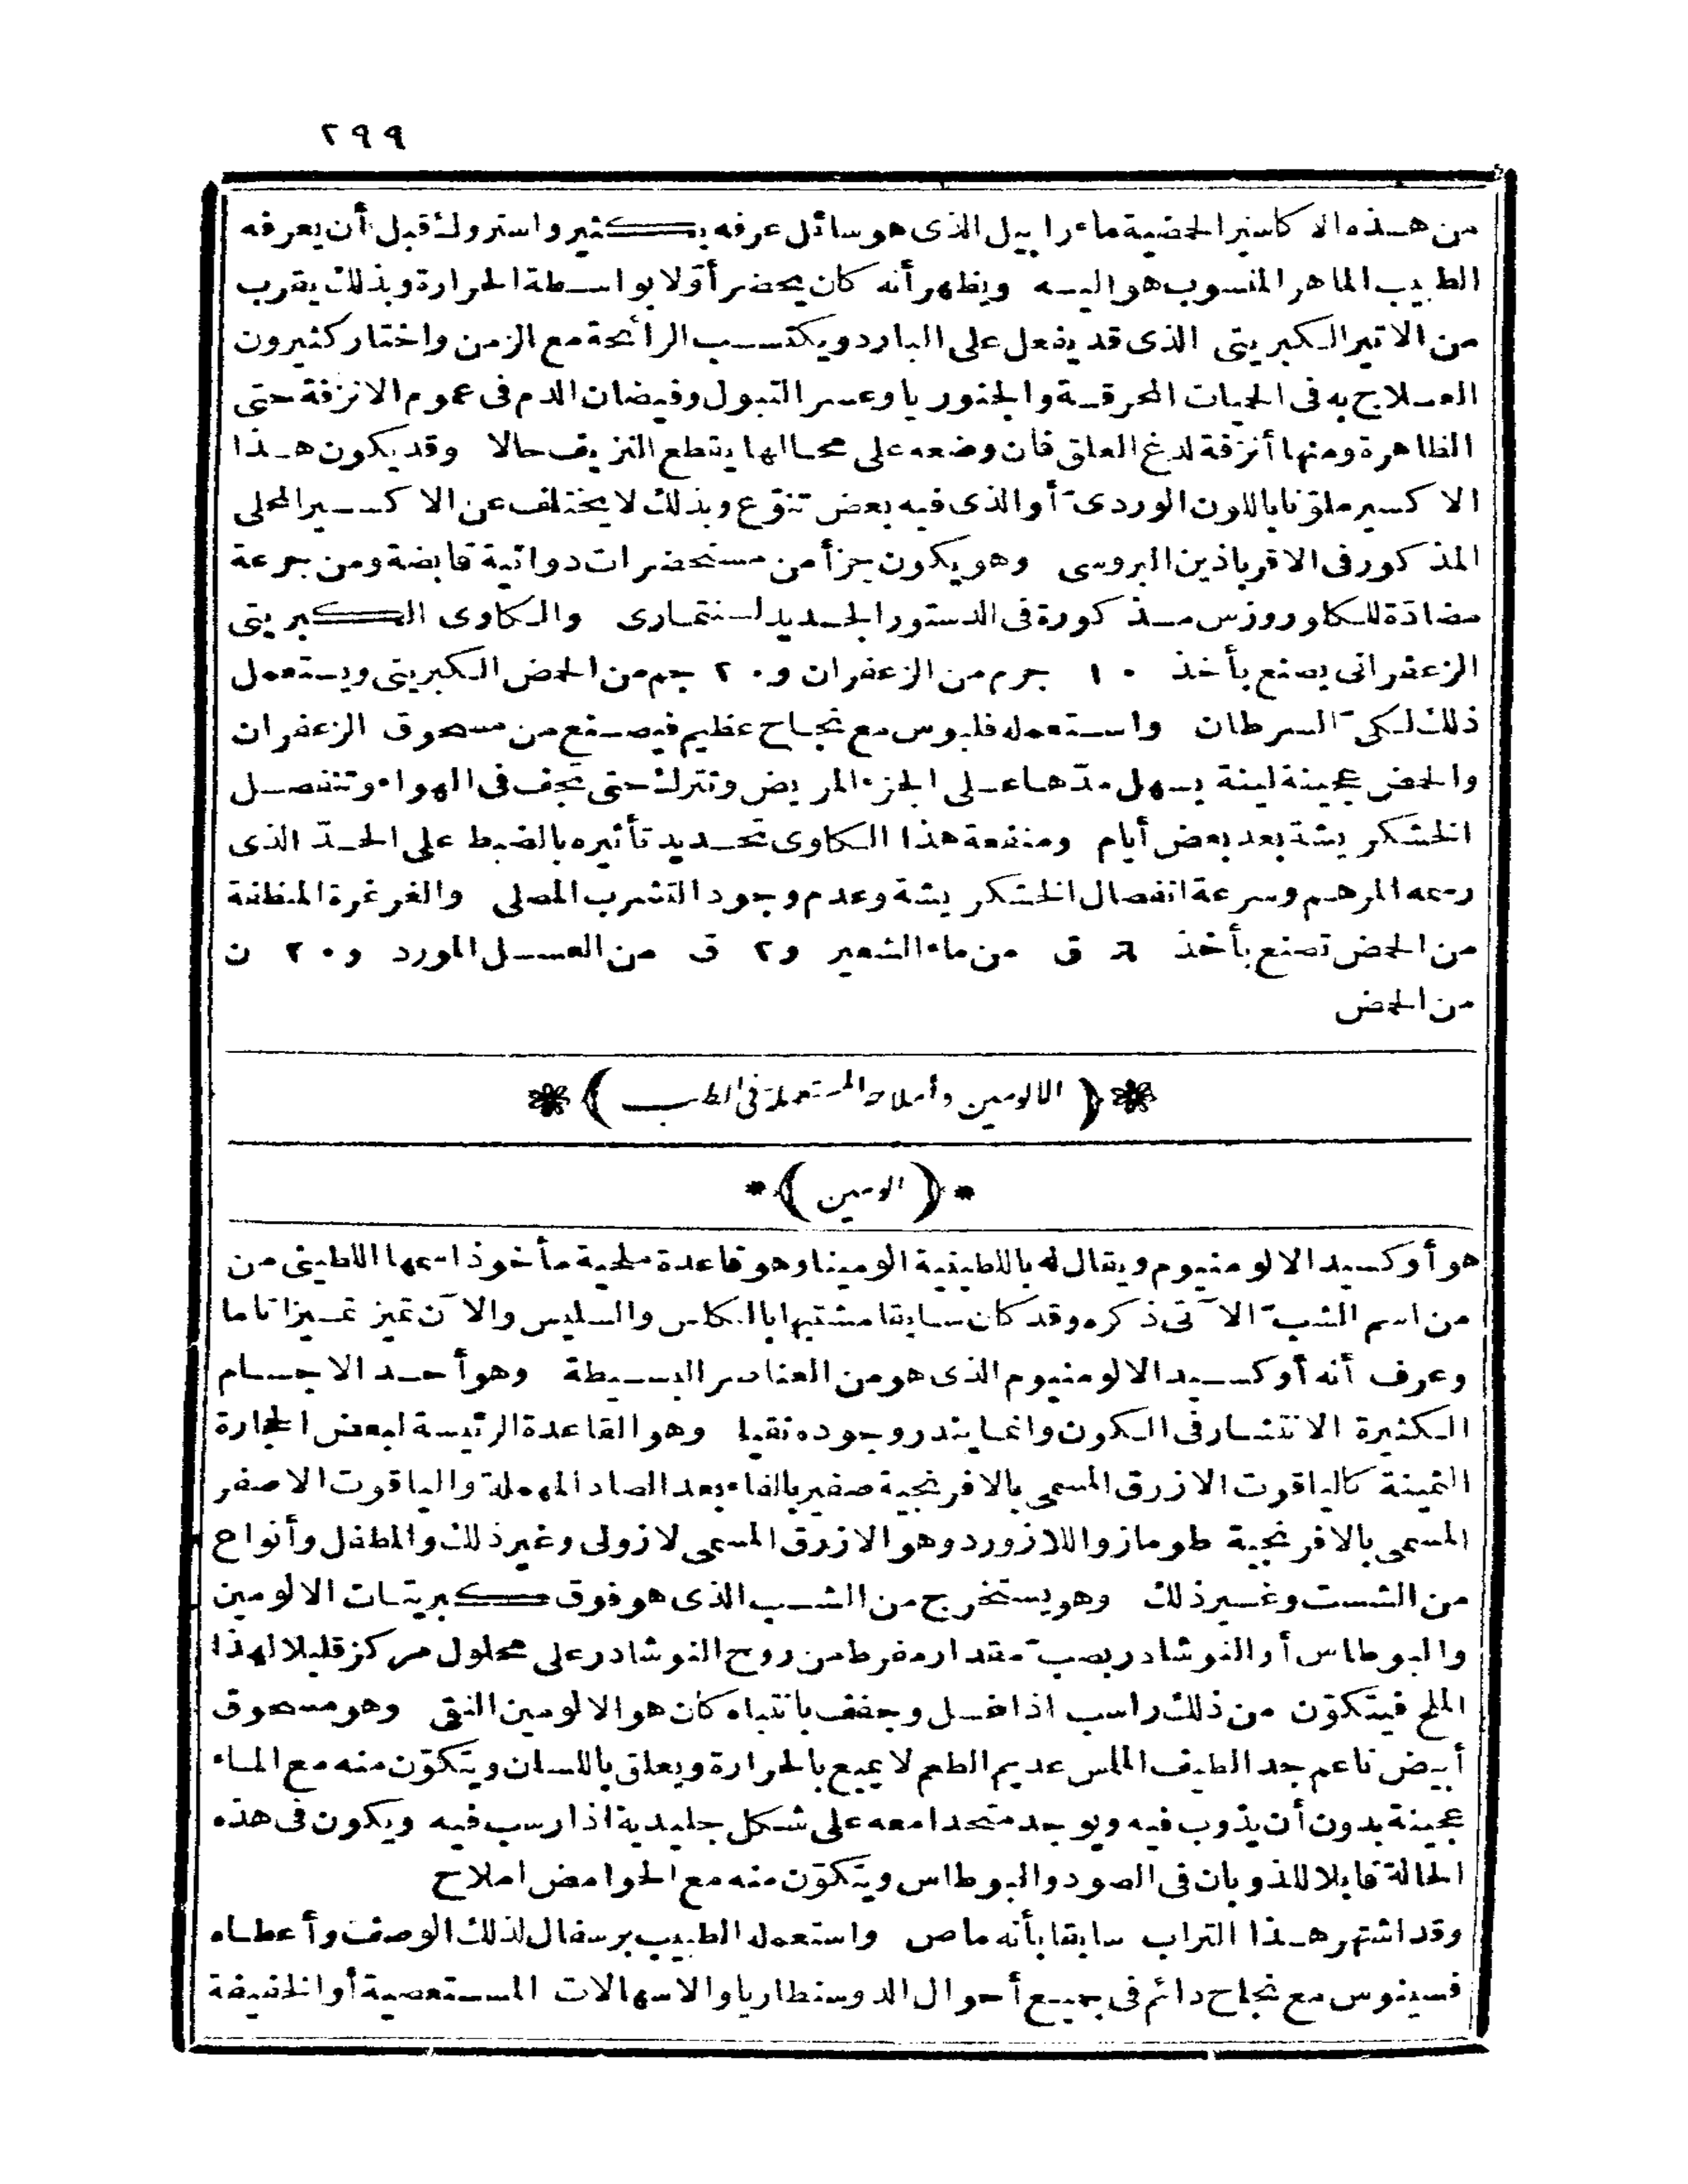 ٢٩٩
من هذه الاكاسير الحمضية ماء رابيل الذى هو سائل عرفه بكثير واسترولك قبل أن يعرفه
الطبيب الماهر المنسوب هو اليه ويظهر أنه كان يحضر أوّلا بواسطة الحرارة وبذلك يقرب
من الاتير الكبريتى الذى قد يفعل على البارد ويكتسب الرائحة مع الزمن واختار كثيرون
العلاج به فى الحميات المحرقة والجنوريا وعسر التبول وفيضان الدم فى عموم الانزفة حتى
الظاهرة ومنها أنزفة لدغ العلق فان وضعه على محالها يقطع النزيف حالا وقد يكون هذا
الاكسير ملوّنا باللون الوردىّ أو الذى فيه بعض تنوّع وبذلك لا يختلف عن الاكسير المحلى
المذكور فى الاقرباذين البروسى وهو يكون جزأ من مستحضرات دوائية قابضة ومن جرعة
مضادّة للكلوروزس مذكورة فى الدستور الجديد لسنتمارى والكاوى الكبريتى
الزعفرانى يصنع بأخذ ١٠ جرم من الزعفران و٢٠ جم من الحمض الكبريتى ويستعمل
ذلك لكىّ السرطان واستعمله فلبوس مع نجاح عظيم فيصنع من مسحوق الزعفران
والحمض عجينة لينة يسهل مدّها على الجزء المريض وتترك حتى تجف فى الهواء وتنفصل
الخشكريشة بعد بعض أيام ومنفعة هذا الكاوى تحديد تأثيره بالضبط على الحدّ الذى
رسمه المرهم وسرعة انفصال الخشكريشة وعدم وجود التشرب المصلى والغرغرة المنظفة
من الحمض تصنع بأخذ ٦ ق من ماء الشعير و٢ ق من العسل المورد و٢٠ ن
من الحمض
❋ ( الالومين وأملاحه المستعملة فى الطب ) ❋
* ( الومين ) *
هو أوكسيد الالومنيوم ويقال له باللطينية الومينا وهو قاعدة ملحية مأخوذ اسمها اللطينى من
من اسم الشبّ الآتى ذكره وقد كان سابقا مشتبها بالكلس والسليس والآن تميز تميزا تاما
وعرف أنه أوكسيد الالومنيوم الذى هو من العناصر البسيطة وهو أحد الاجسام
الكثيرة الانتشار فى الكون وانما يندر وجوده نقيا وهو القاعدة الرئيسة لبعض الحجارة
الثمينة كالياقوت الازرق المسمى بالافرنجية صفير بالفاء بعد الصاد المهملة والياقوت الاصفر
المسمى بالافرنجية طوماز واللازورد وهو الازرق المسمى لازولى وغير ذلك والطفل وأنواع
من الشست وغير ذلك وهو يستخرج من الشب الذى هو فوق كبريتات الالومين
والبوطاس أو النوشادر بصبّ مقدار مفرط من روح النوشادر على محلول مركز قليلا لهذا
الملح فيتكوّن من ذلك راسب اذا غسل وجفف بانتباه كان هو الالومين النقى وهو مسحوق
أبيض ناعم جد الطيف الملس عديم الطعم لا يميع بالحرارة ويعلق باللسان ويتكوّن منه مع الماء
عجينة بدون أن يذوب فيه ويوجد متحدا معه على شكل جليدية اذا رسب فيه ويكون فى هذه
الحالة قابلا للذوبان فى الصود والبوطاس ويتكوّن منه مع الحوامض املاح
وقد اشتهر هذا التراب سابقا بأنه ماص واستعمله الطبيب برسفال لذلك الوصف وأعطاه
فسينوس مع نجاح دائم فى جميع أحوال الدوسنطاريا والاسهالات المستعصية أو الخفيفة